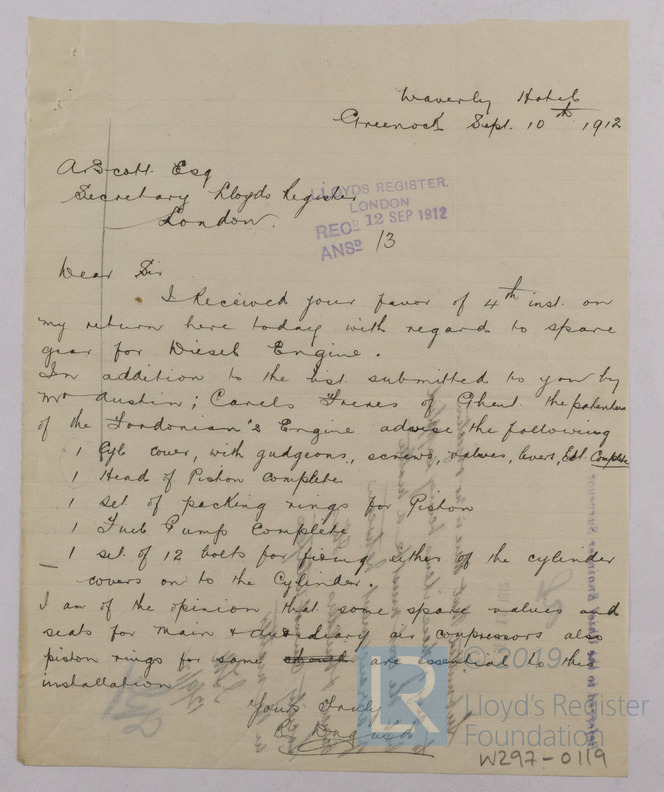 Waverly Hotel
Greenock Sept. 10th 1912
A. Scott. Esq
Secretary Lloyds Register
London.
LLOYDS REGISTER.
LONDON
RECD 12 SEP 1912
ANSD 13
Dear Sir
I Received your favor of 4th inst. on
my return here today with regard to spare
gear for Diesel Engine.
In addition to the list submitted to you by
Mr Austin; Carels Freres of Ghent. the patentees
of the Fordonian's Engine advise the following
1 Cyl cover, with gudgeons, screws, valves, lever, Complete
1 Head of Piston complete
1 set of packing rings for Piston
1 Fuel Pump complete
1 set of 12 bolts for fixing either of the cylinder
covers on to the Cylinder.
I am of the opinion that some spare valves and
seats for main & auxiliary air compressors also
piston rings for same should are essential to this
installation
Yours Truly
© 2019
LR
Lloyd's Register
Foundation
W297-0119